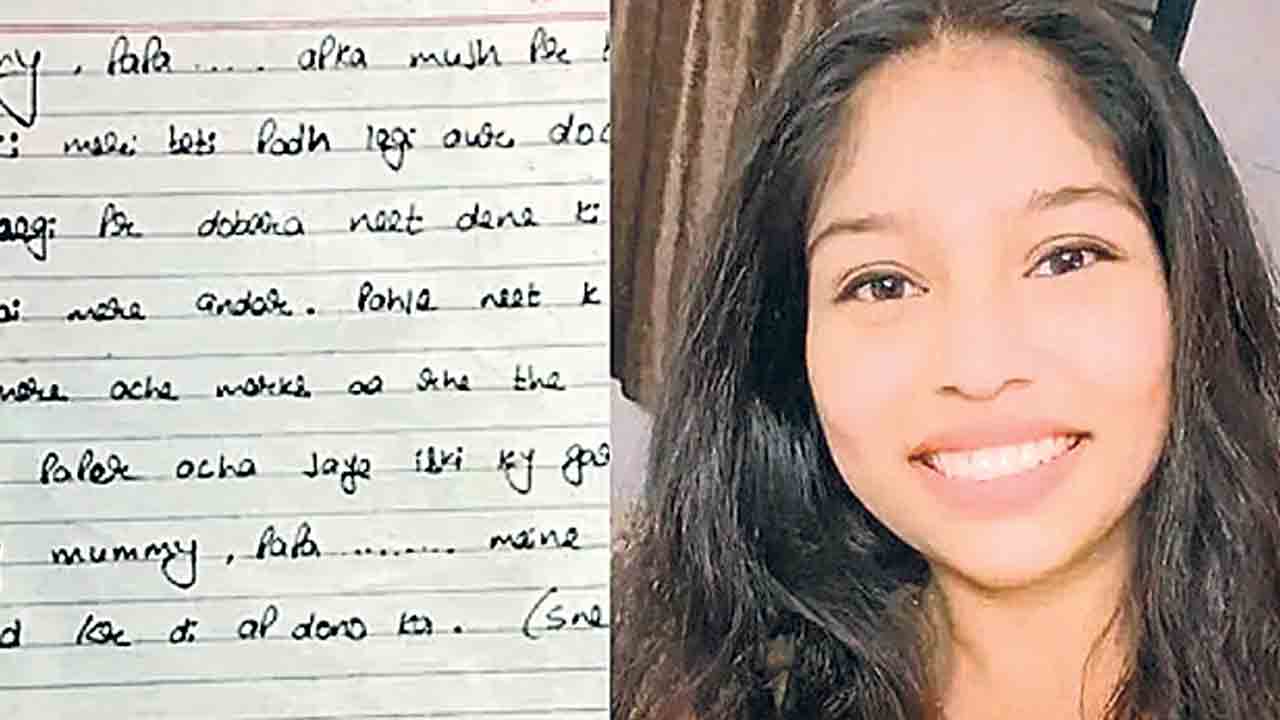 , PaPa .... aPka mujh Per
meri beti Padh legi aur doc
Per dobara neet dene ki
mere andar. Pahle neet k
mere ache marks aa rhe the
PaPer acha jaye iski ky gar
mummy, PaPa ........ maine
d kar di aP dono ka. (Sne